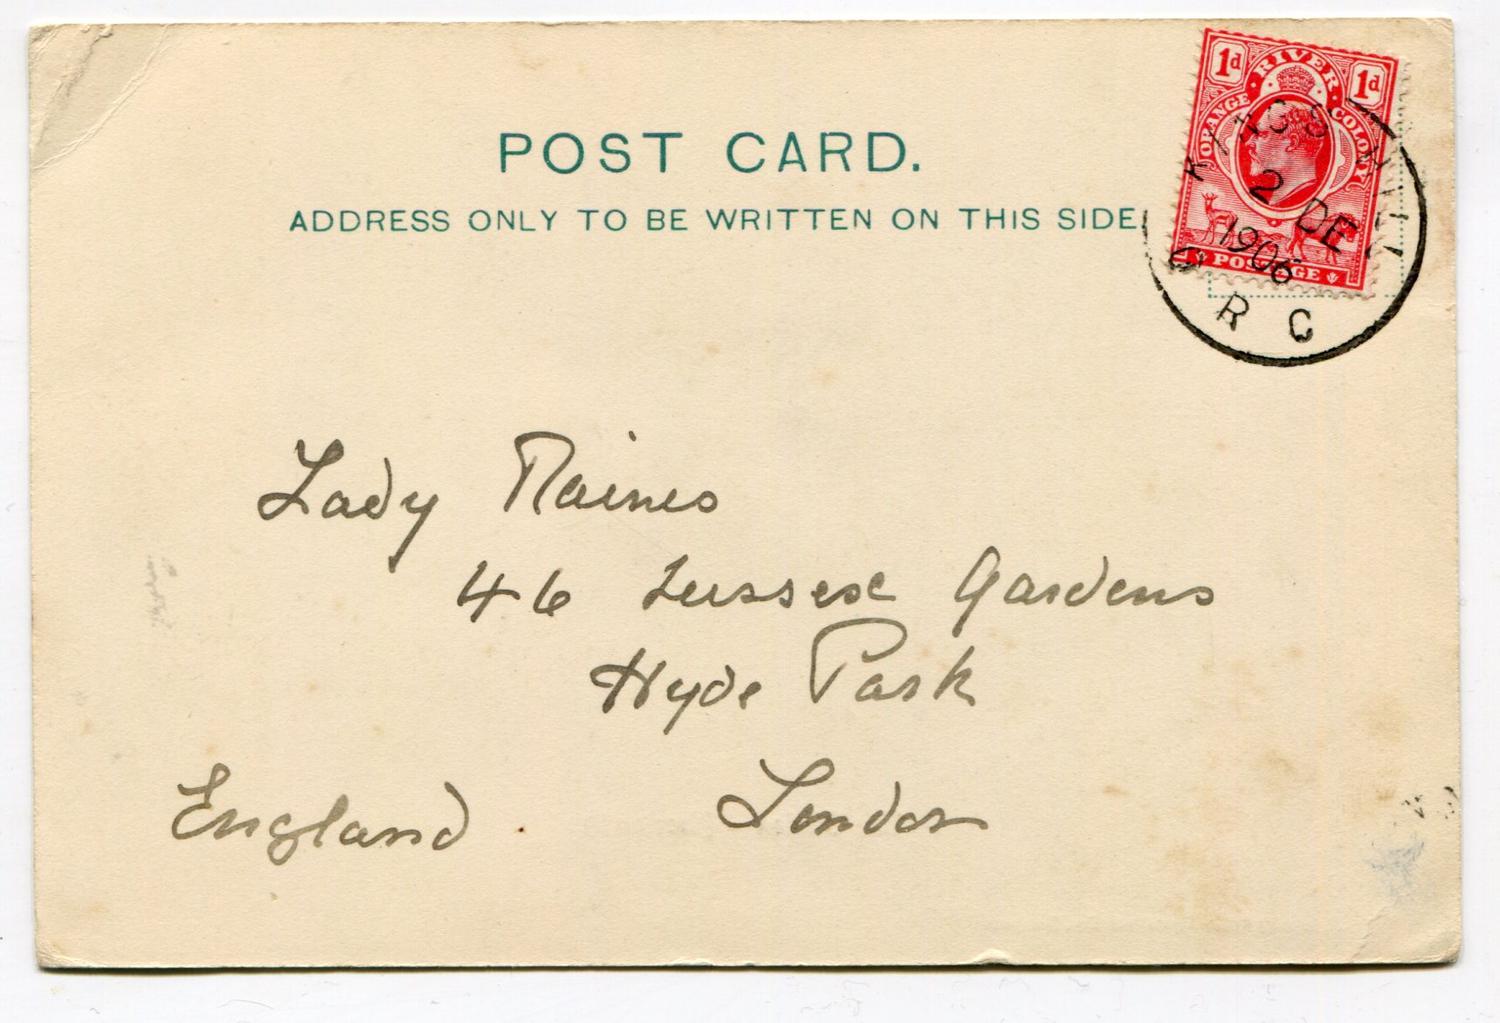 POST CARD.
ADDRESS ONLY TO BE WRITTEN ON THIS SIDE
1d RIVER 1d
ORANGE COLONY
POSTAGE
KINGS
2 DE
1906
O R C
Lady Raines
46 Sussex Gardens
Hyde Park
London
England